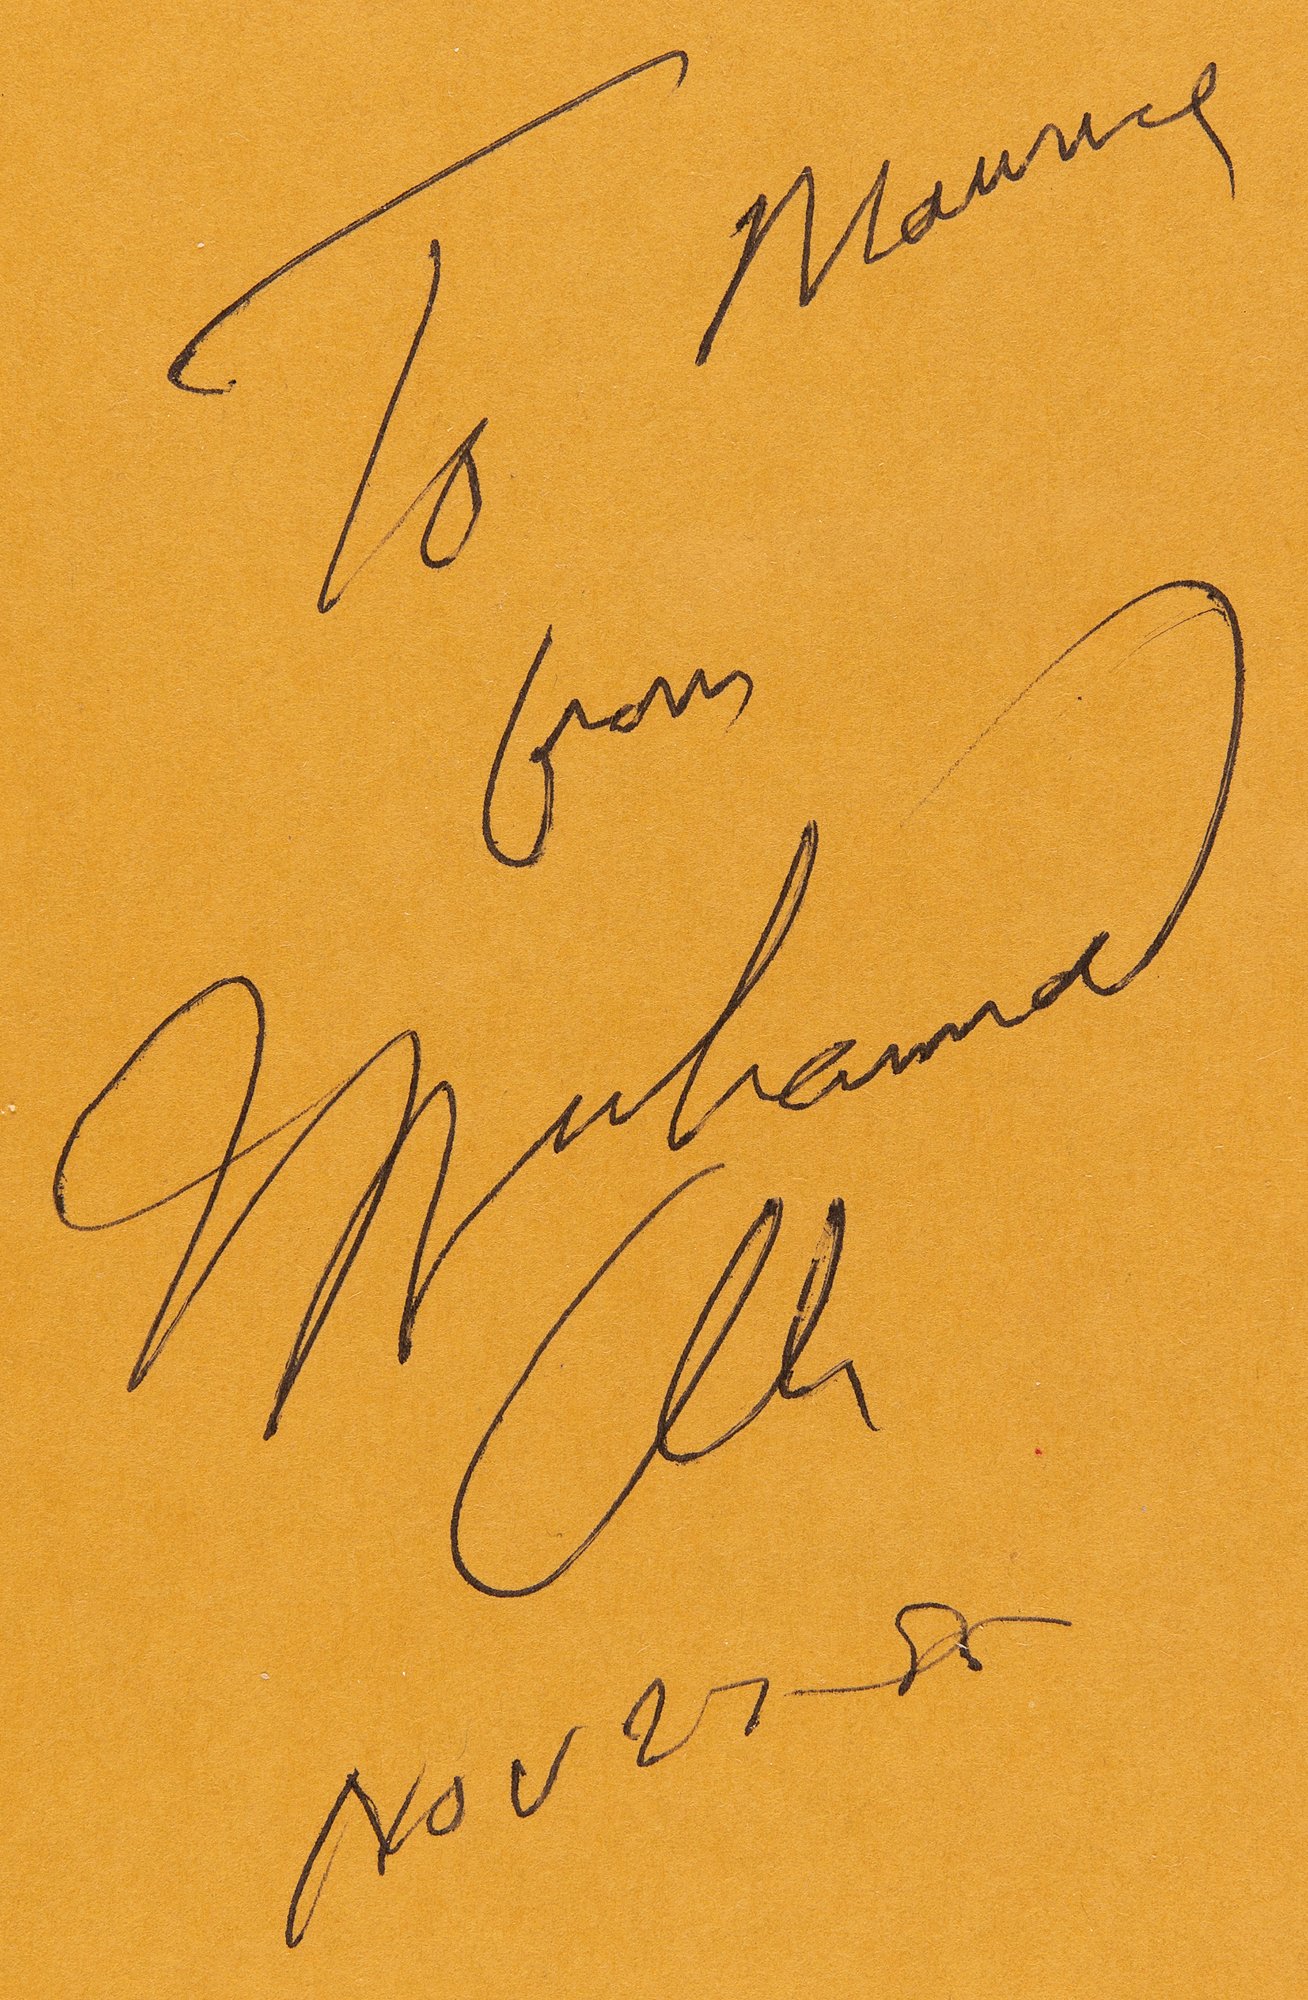 To Maurice
from
Muhammad
Ali
Nov 27-85